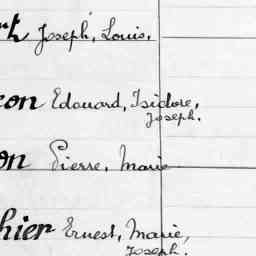 rt Joseph, Louis.
con Edouard, Isidore,
Joseph.
on Pierre, Marie
hier Ernest, Marie,
Joseph.